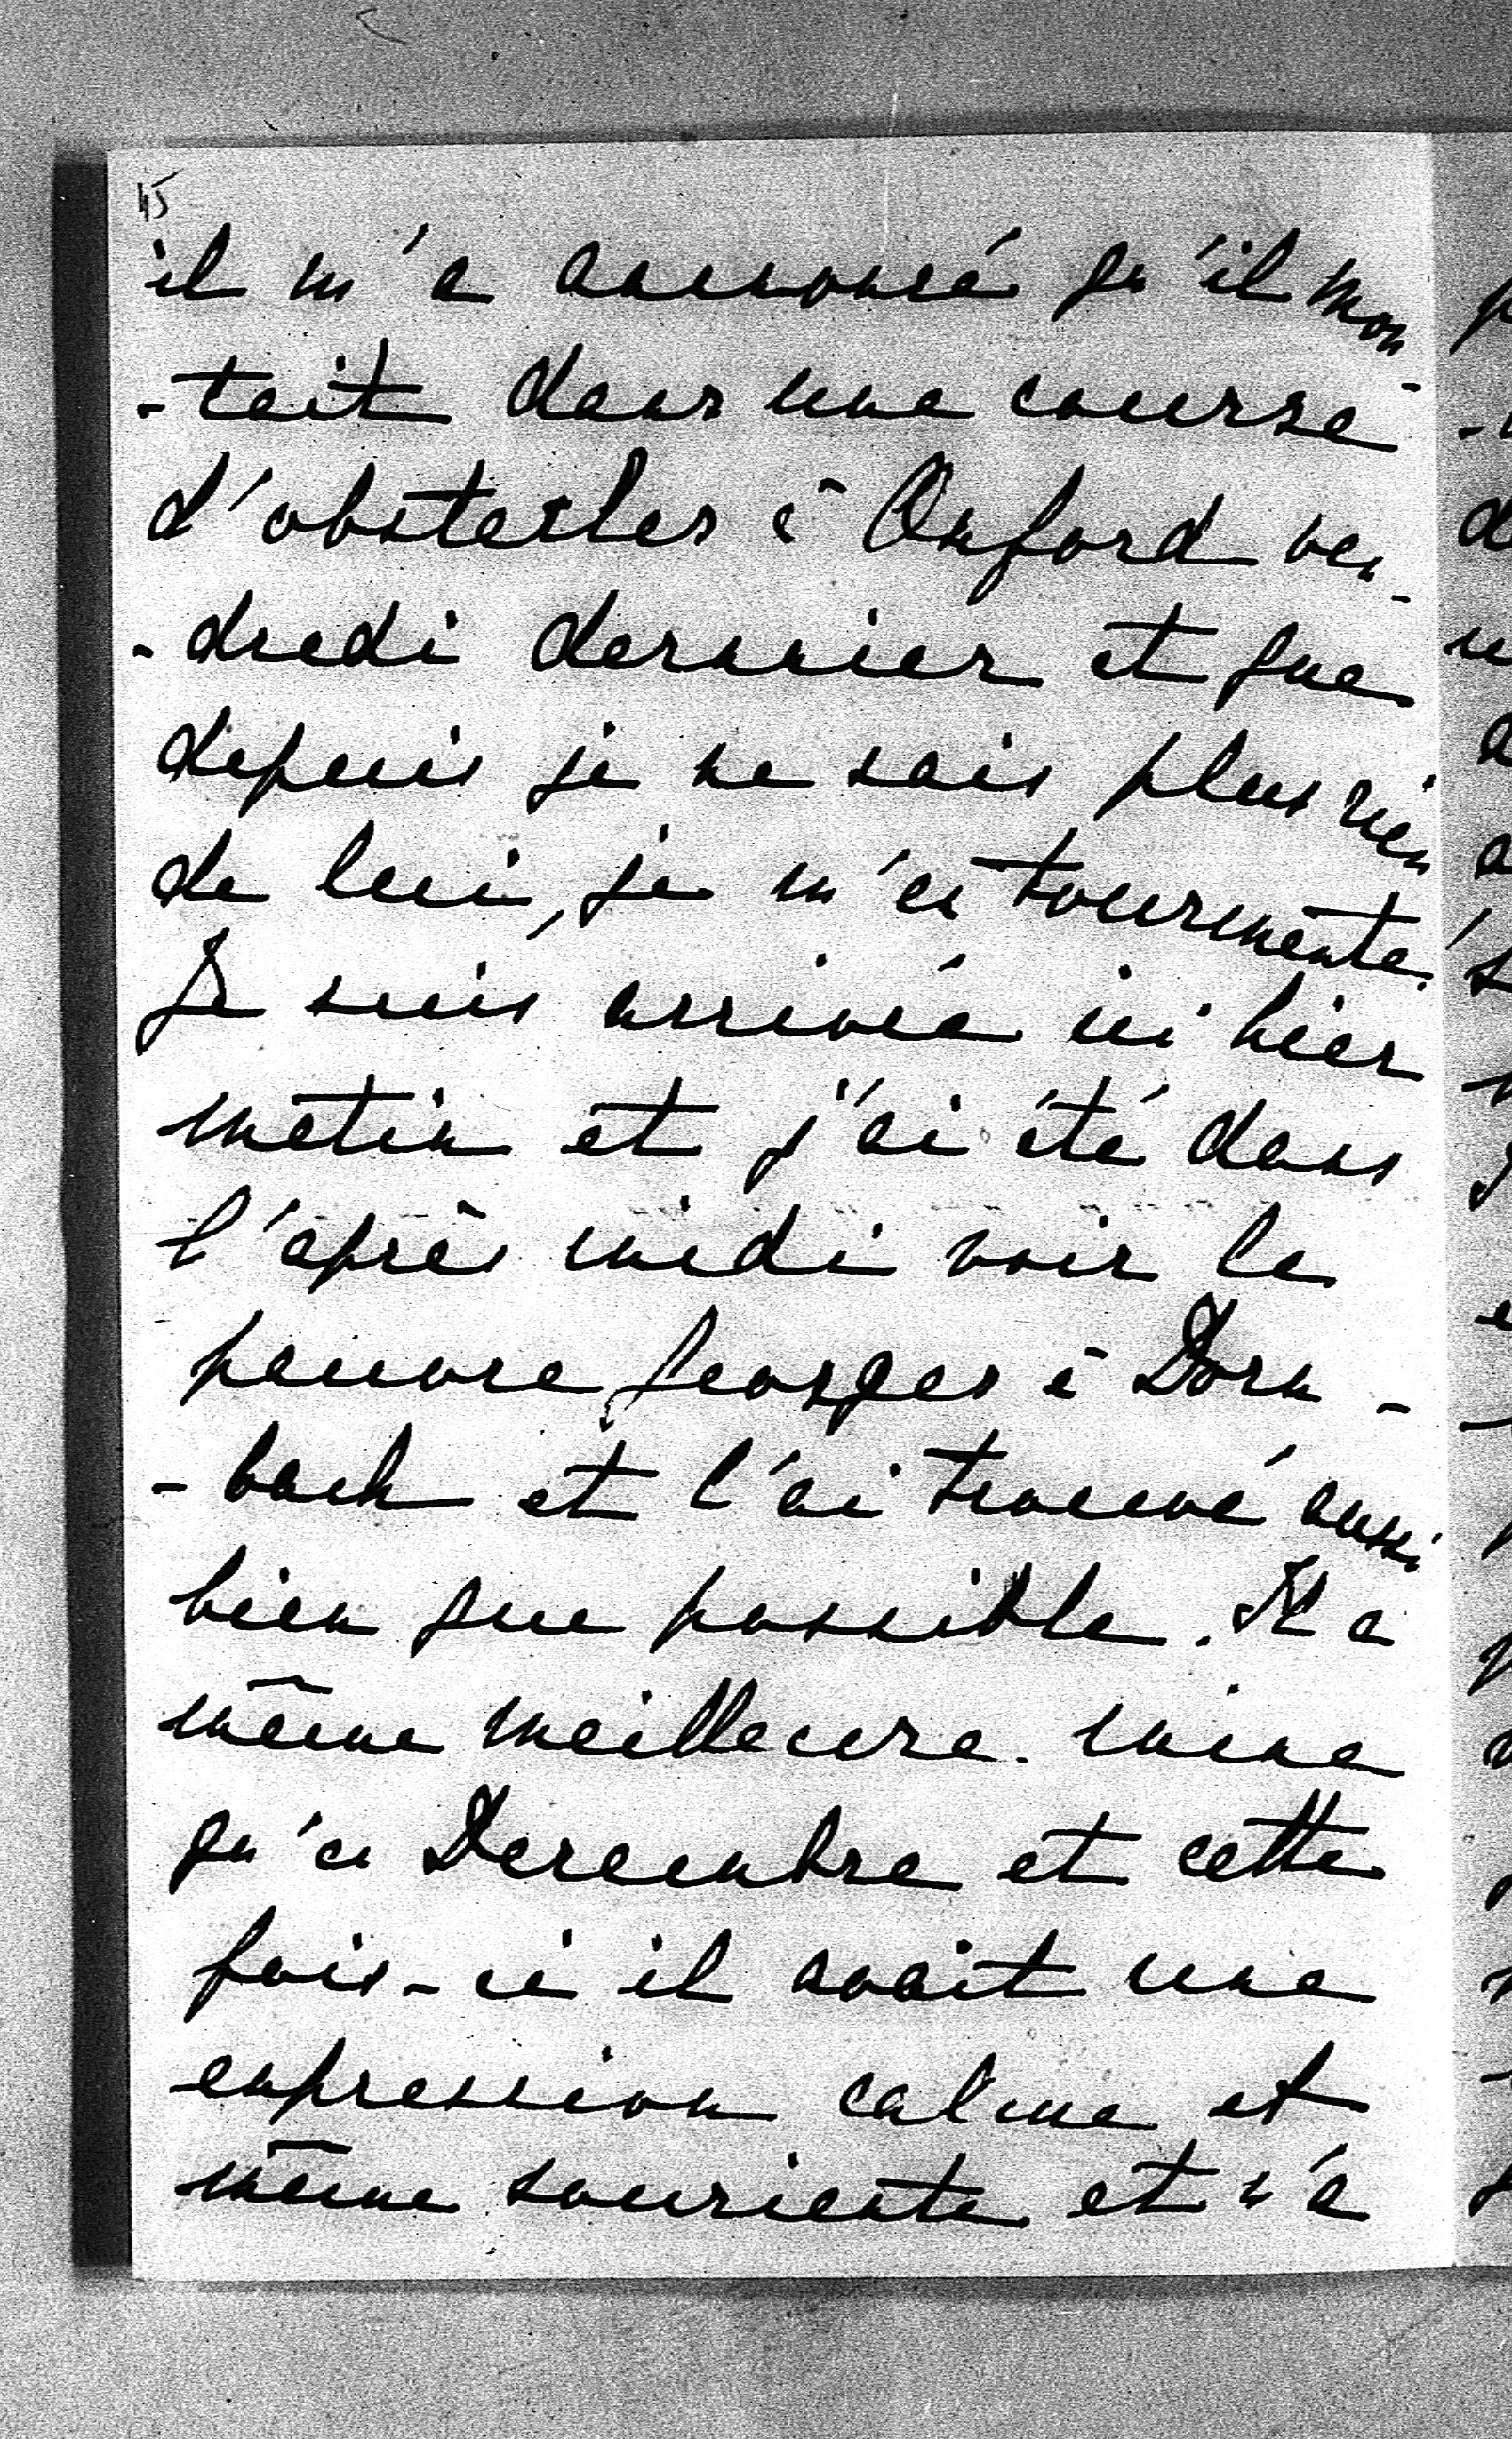 45
il m'a annoncé qu'il mon-
-tait dans une course
d'obstacles à Oxford ven-
-dredi dernier et que
depuis je ne sais plus rien
de lui, je m'en tourmente.
Je suis arrivée ici hier
matin et j'ai été dans
l'après midi voir le
pauvre Georges à Dorn-
-bach et l'ai trouvé aussi
bien que possible. Il a
même meilleure mine
qu'en Decembre et cette
fois-ci il avait une
expression calme et
même souriente et n'a